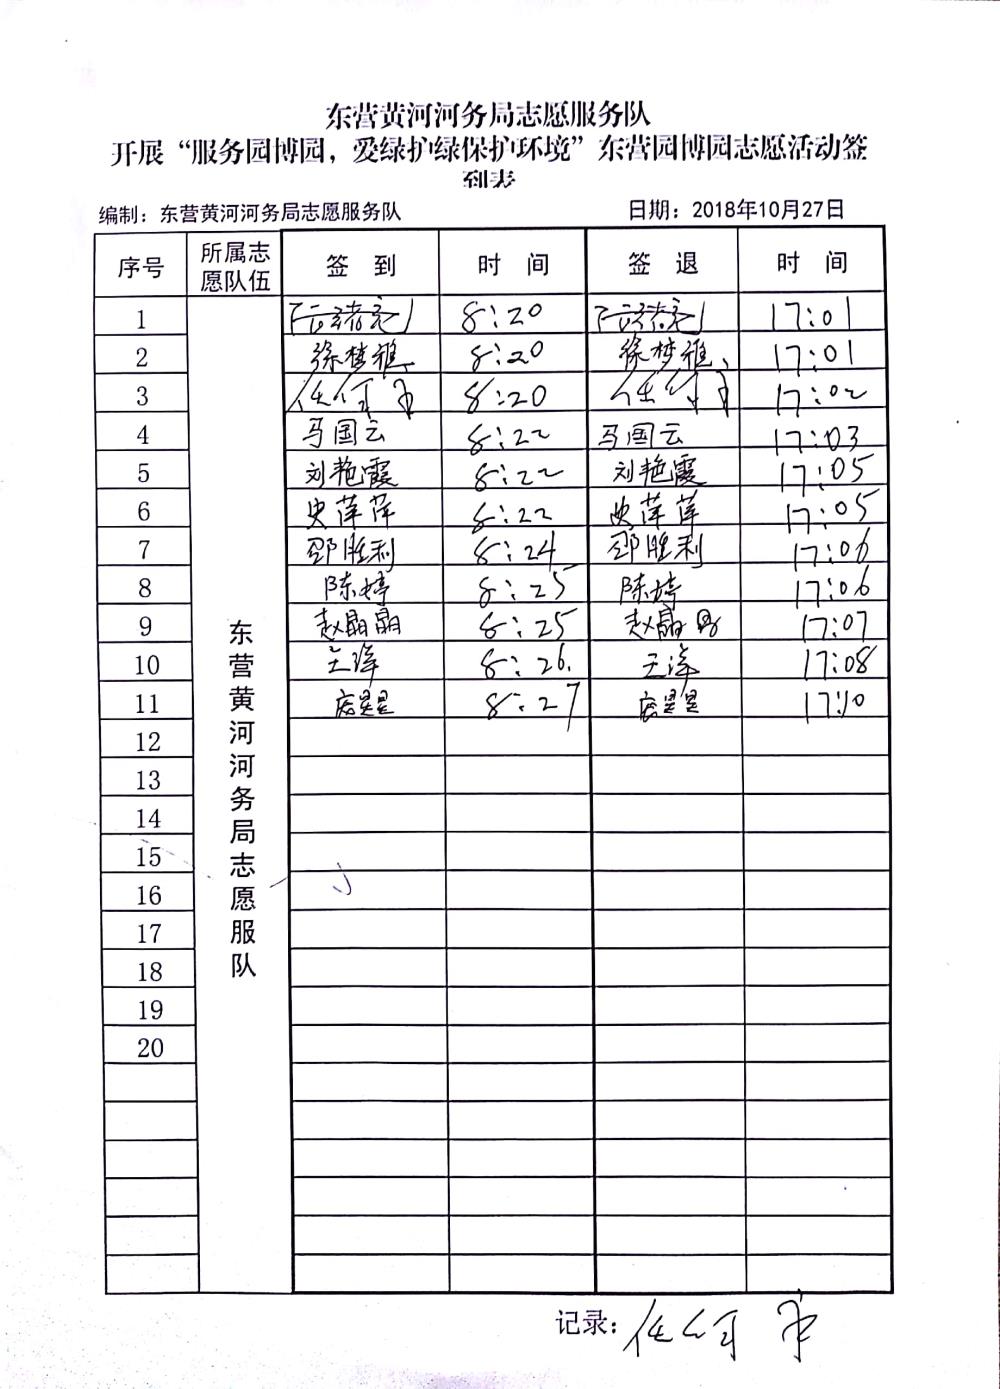 东营黄河河务局志愿服务队
开展“服务园博园，爱绿护绿保护环境”东营园博园志愿活动签
到表
编制：东营黄河河务局志愿服务队 日期：2018年10月27日
序号 所属志愿队伍 签到 时间 签退 时间
东营黄河河务局志愿服务队
1 8:20 17:01
2 徐梦雅 8:20 徐梦雅 17:01
3 8:20 17:02
4 马国云 8:22 马国云 17:03
5 刘艳霞 8:22 刘艳霞 17:05
6 史萍萍 8:22 史萍萍 17:05
7 邵胜利 8:24 邵胜利 17:06
8 陈婷 8:25 陈婷 17:06
9 赵晶晶 8:25 赵晶晶 17:07
10 王洋 8:26. 王洋 17:08
11 8:27 17:10
12
13
14
15
16
17
18
19
20
记录：